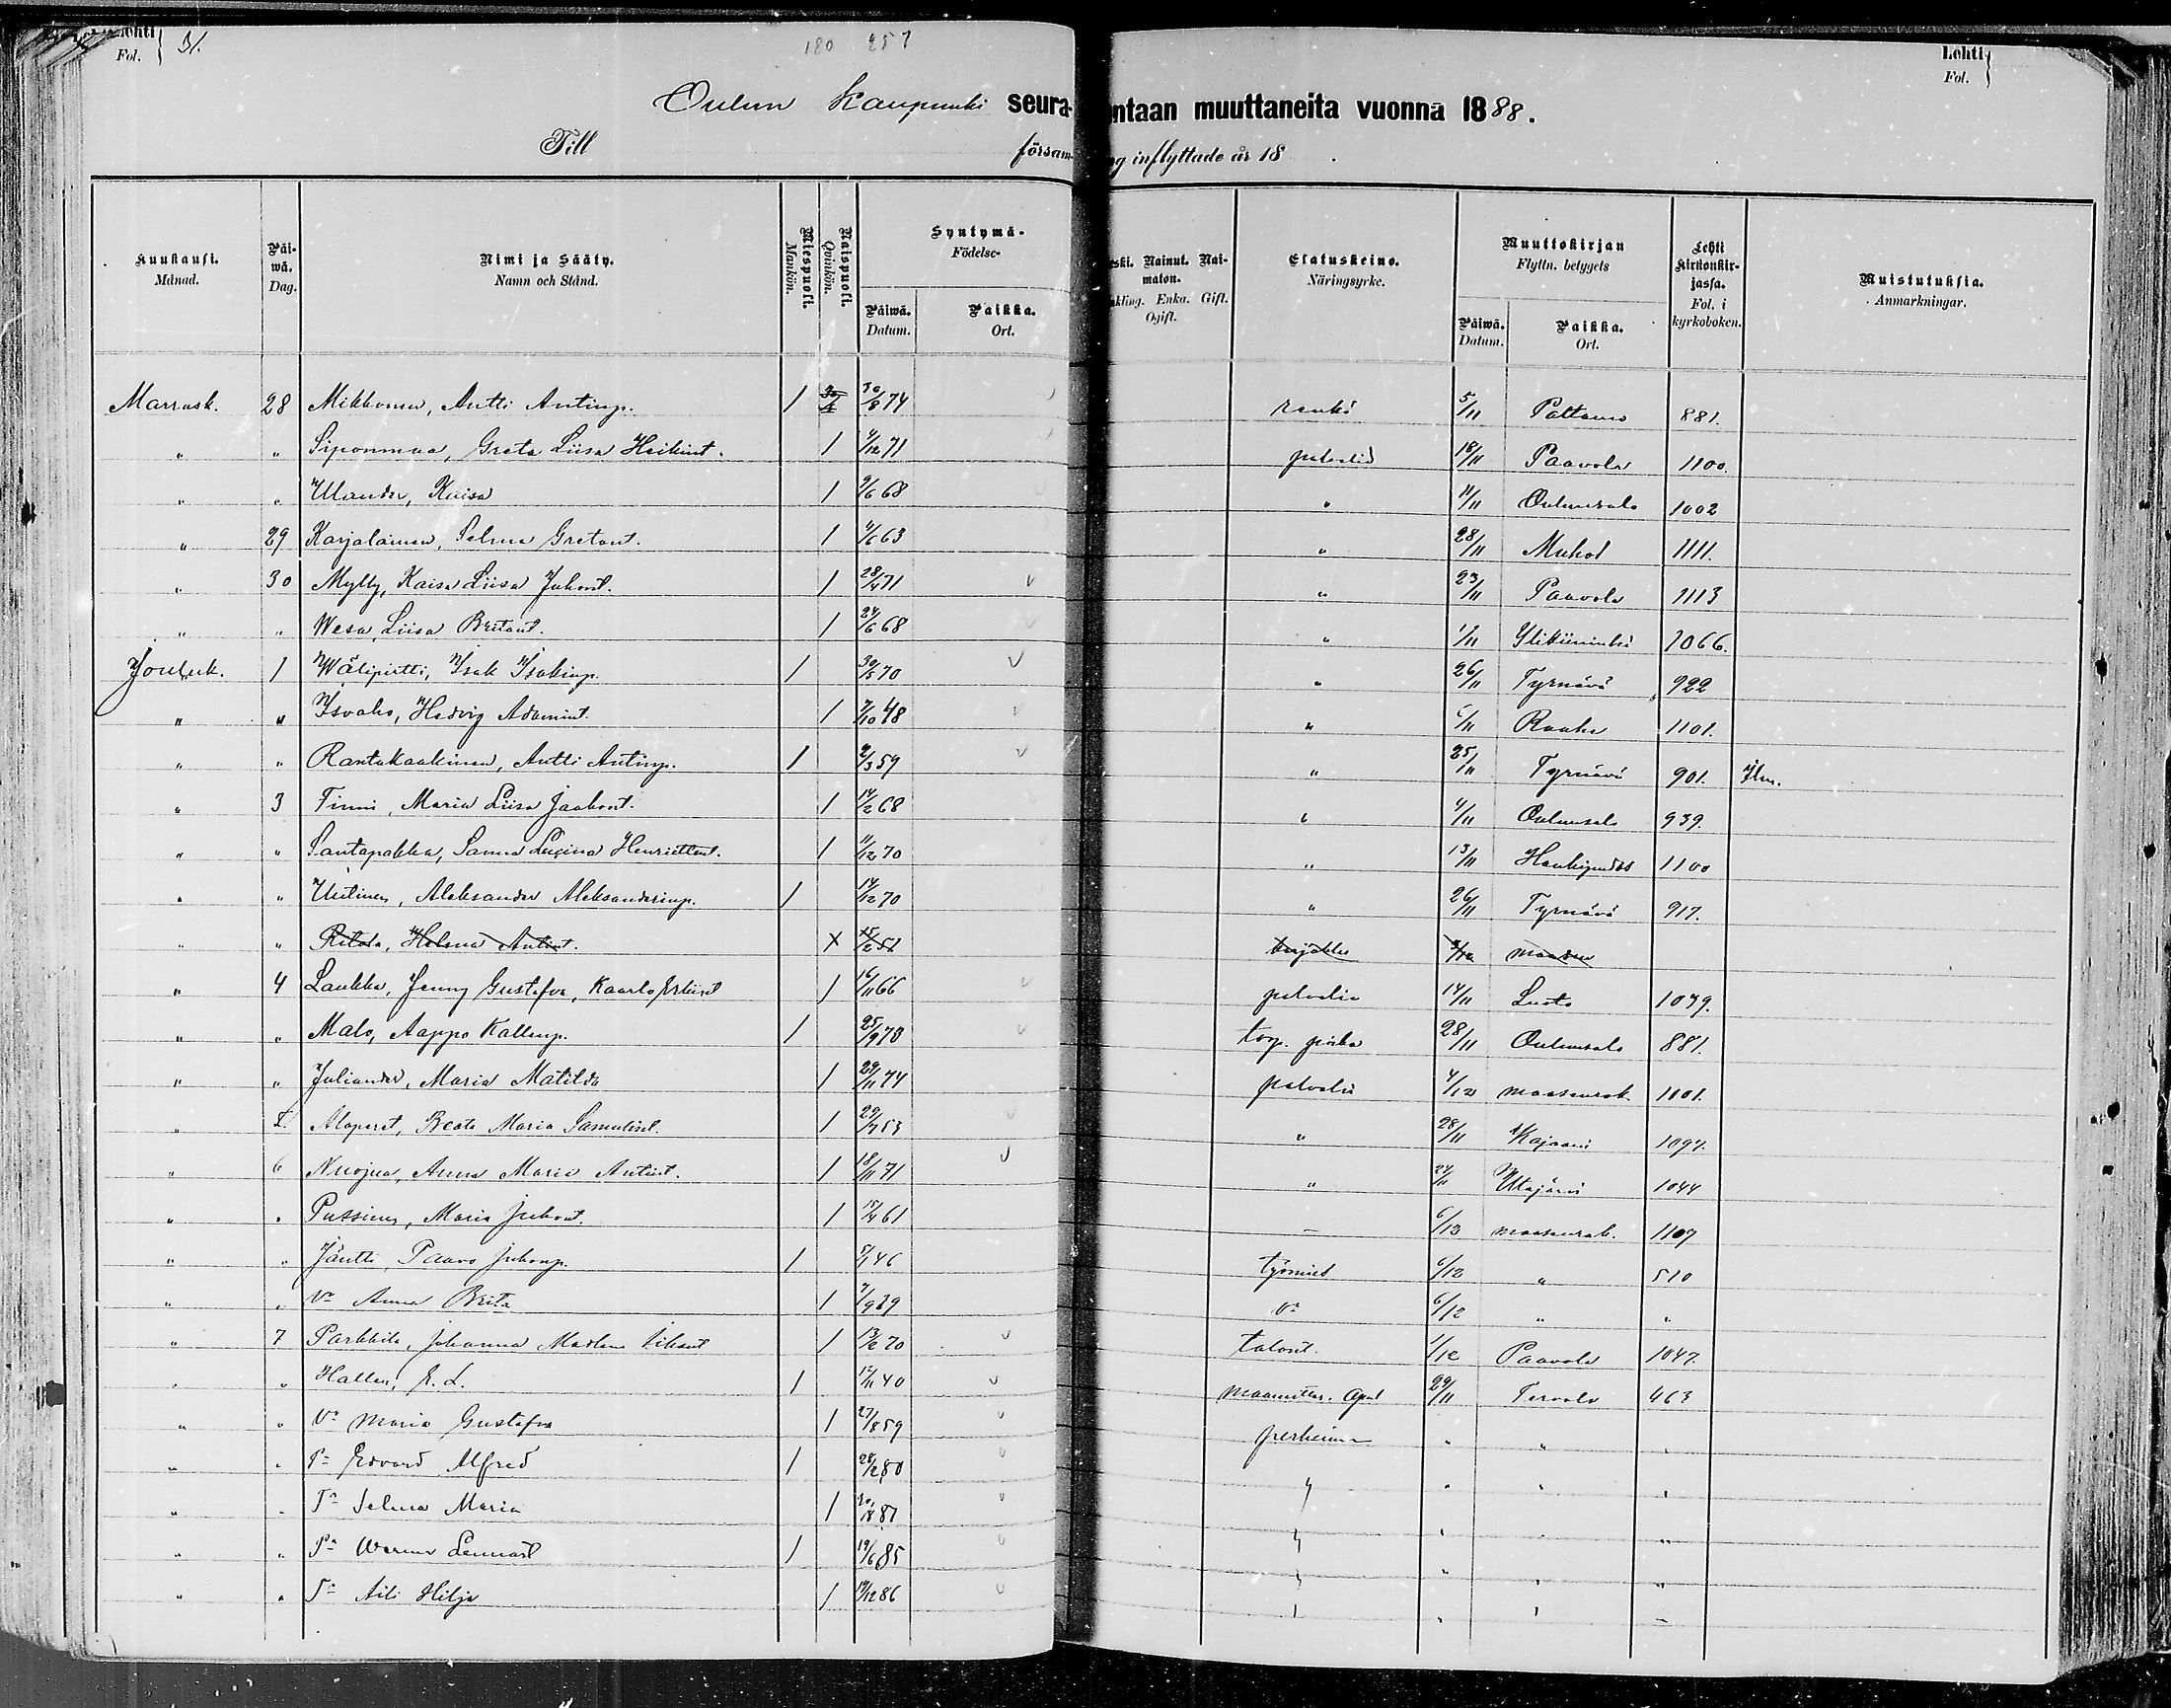 Lehti Fol. 31.
180 257
Lehti Fol.
Oulun Kaupunki seura- ntaan muuttaneita vuonna 1888.
Till försam- g inflyttade år 18 .
Kuukausi. Månad. Päi-wä. Dag. Nimi ja Sääty. Namn och Stånd. Miespuoli. Mankön. Naispuoli. Qvinkön. Syntymä- Födelse- Päiwä. Datum. Paikka. Ort. eski. Nainut. Nai-maton. kling. Enka. Gift. Ogift. Elatuskeino. Näringsyrke. Muuttokirjan Flyttn. betygets Päiwä. Datum. Paikka. Ort. Lehti Kirkonkir-jassa. Fol. i kyrkoboken. Muistutuksia. Anmarkningar.
Marrask. 28 Mikkonen, Antti Antinp. 1 30/8 74 renki 5/11 Paltamo 881.
" " Siponmaa, Greta Liisa Heikint. 1 4/12 71 palvelia 18/11 Paavola 1100.
" " Ulander, Kaisa 1 9/6 68 " 11/11 Oulunsalo 1002
" 29 Karjalainen, Selma Gretant. 1 4/6 63 " 28/11 Muhos 1111.
" 30 Mylly, Kaisa Liisa Juhont. 1 28/4 71 " 23/11 Paavola 1113
" " Wesa, Liisa Britant. 1 24/6 68 " 1/11 Ylikiiminki 1066.
Jouluk. 1 Wälipirtti, Isak Isakinp. 1 30/5 70 " 26/11 Tyrnävä 922
" " Isoaho, Hedvig Adamint. 1 7/10 48 " 6/11 Raahe 1101.
" " Rantakaakinen, Antti Antinp. 1 2/3 59 " 25/11 Tyrnävä 901. Ilm.
" 3 Finni, Maria Liisa Jaakont. 1 14/2 68 " 4/11 Oulunsalo 939.
" " Santapakka, Sanna Loviisa Henriktint. 1 11/12 70 " 13/11 Haukipudas 1100
" " Uutinen, Aleksander Aleksanderinp. 1 14/12 70 " 26/11 Tyrnävä 917.
" " Ritola, Helena Antint. X 15/2 51 3/12
" 4 Laukka, Jenny Gustafva, Kaarlo Erkint 1 16/11 66 palvelia 14/11 Luoto 1079.
" " Malo, Aappo Kallenp. 1 25/9 73 torp. poika 28/11 Oulunsalo 881.
" " Juliander, Maria Matilda 1 29/11 74 palvelia 4/12 maaseurak. 1101.
" 5 Alaperet, Beata Maria Samulint. 1 29/7 53 " 28/11 Kajaani 1097.
" 6 Nuojua, Anna Maria Antint. 1 18/11 71 " 24/11 Utajärvi 1044
" " Pussinen, Maria Juhont. 1 15/4 61 – 6/12 maaseurak. 1107
" " Jäntti, Paavo Juhonp. 1 7/1 46 työmies 6/12 " 510
" " Vo Anna Brita 1 7/9 39 Vo 6/12 " "
" 7 Parkkila, Johanna Madlena 1 13/2 70 talont. 1/12 Paavola 1047.
" " Hallen, E. L. 1 17/11 40 Maamittar. Apul 29/11 Tervola 463
" " Vo Maria Gustafva 1 27/8 59 perheineen " " "
" " Pa Edvard Alfred 1 28/2 80 " " " "
" " Tr Selma Maria 1 " " " "
" " Pa Werner Lennart 1 19/6 85 " " " "
" " Tr Aili Hilja 1 14/12 86 " " " –